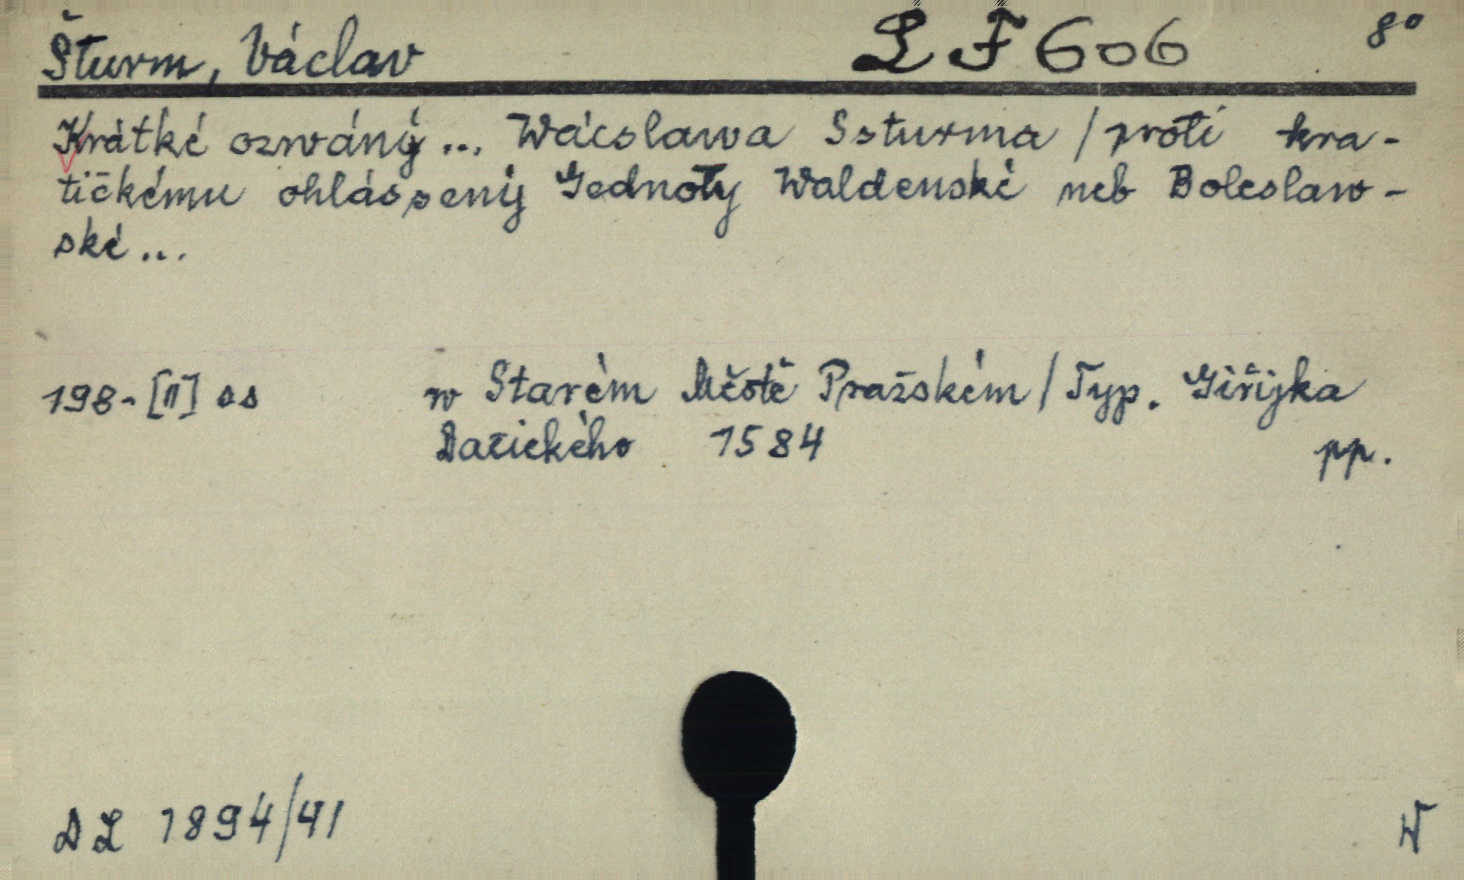 Šturm, Václav LF 606 8°
Krátké ozwáný ... Wácslawa Ssturma / proti kra-
tičkému ohlássený Gednoty Waldenské neb Boleslaw-
ské ...
198-[II] ss w Starém Městě Pražském / Typ. Giřijka
Dačického 1584 pp.
DL 1894/41 W